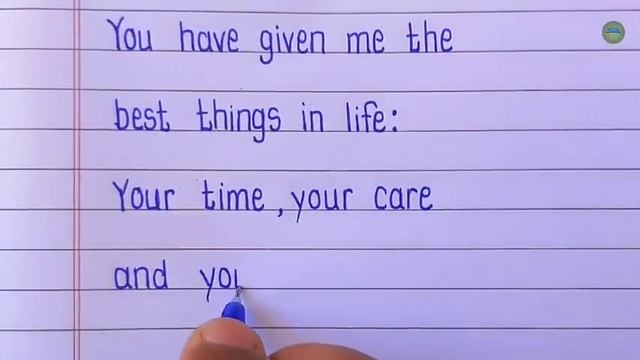 You have given me the
best things in life:
Your time, your care
and you